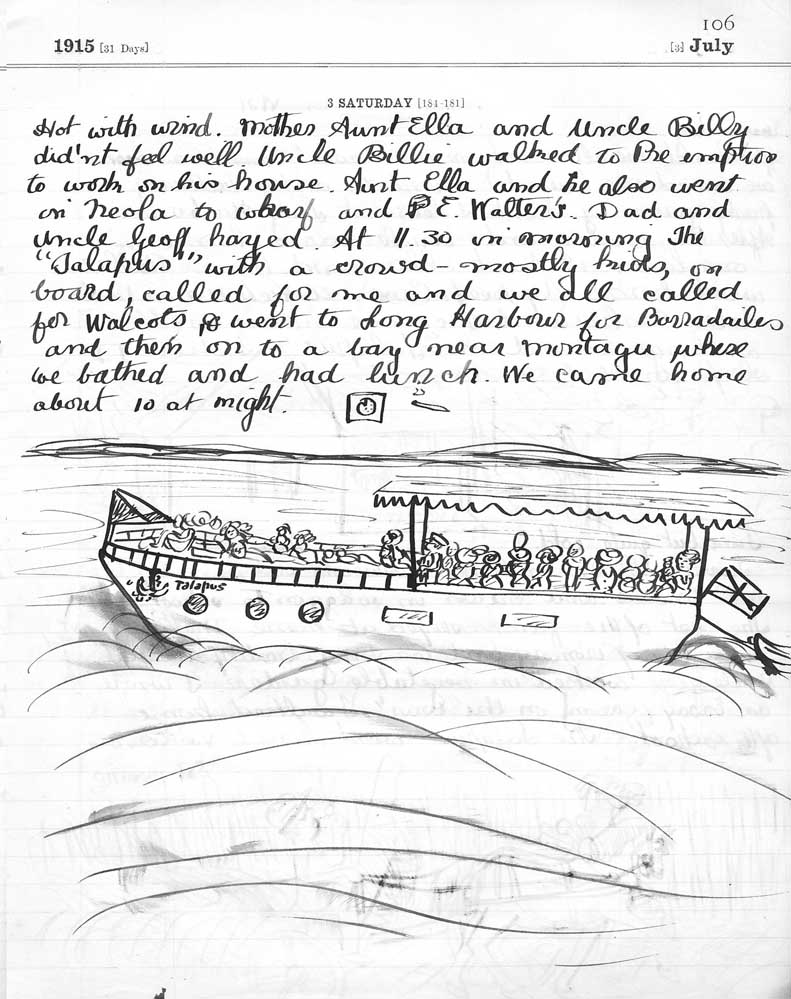 106
1915 [31 Days] [3] July
3 SATURDAY [184-181]
Hot with wind. Mother Aunt Ella and Uncle Billy
did'nt feel well. Uncle Billie walked to Pre emption
to work on his house. Aunt Ella and he also went
in Neola to wharf and P E. Walter's. Dad and
Uncle Geoff hayed. At 11.30 in morning The
"Talapus" with a crowd - mostly kids, on
board, called for me and we all called
for Walcots went to Long Harbour for Borradailes
and then on to a bay near Montagu where
we bathed and had lunch. We came home
about 10 at night.
Talapus